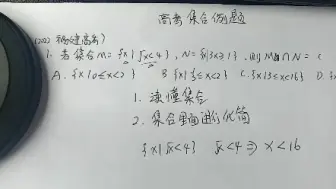 高考集合例题
(2022 新高考)
1. 若集合M={x|√x<4}, N={x|3x≥1}, 则M∩N=(
A. {x|0≤x<2} B {x|⅓≤x<2} C. {x|3≤x<16} D. {x
1. 读懂集合
2. 集合里面进行化简
{x|√x<4} √x<4 ⇒ x<16